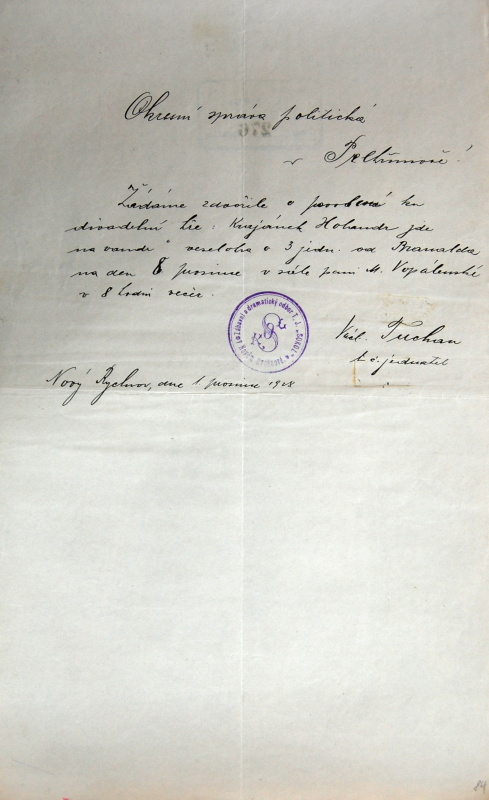 Okresní správa politická
v Pelhřimově!
Žádáme zdvořile o povolení ku
divadelní hře: Krajánek Holandr jde
na vandr" veselohra o 3 jedn. od Branalda
na den 8 prosince v sále paní M. Vopálenské
v 8 hodin večer.
Zábavní a dramatický odbor T. J. „SOKOL"
Václ. Tuchan
t. č. jednatel
Nový Rychnov, dne 1 prosince 1928
276
84